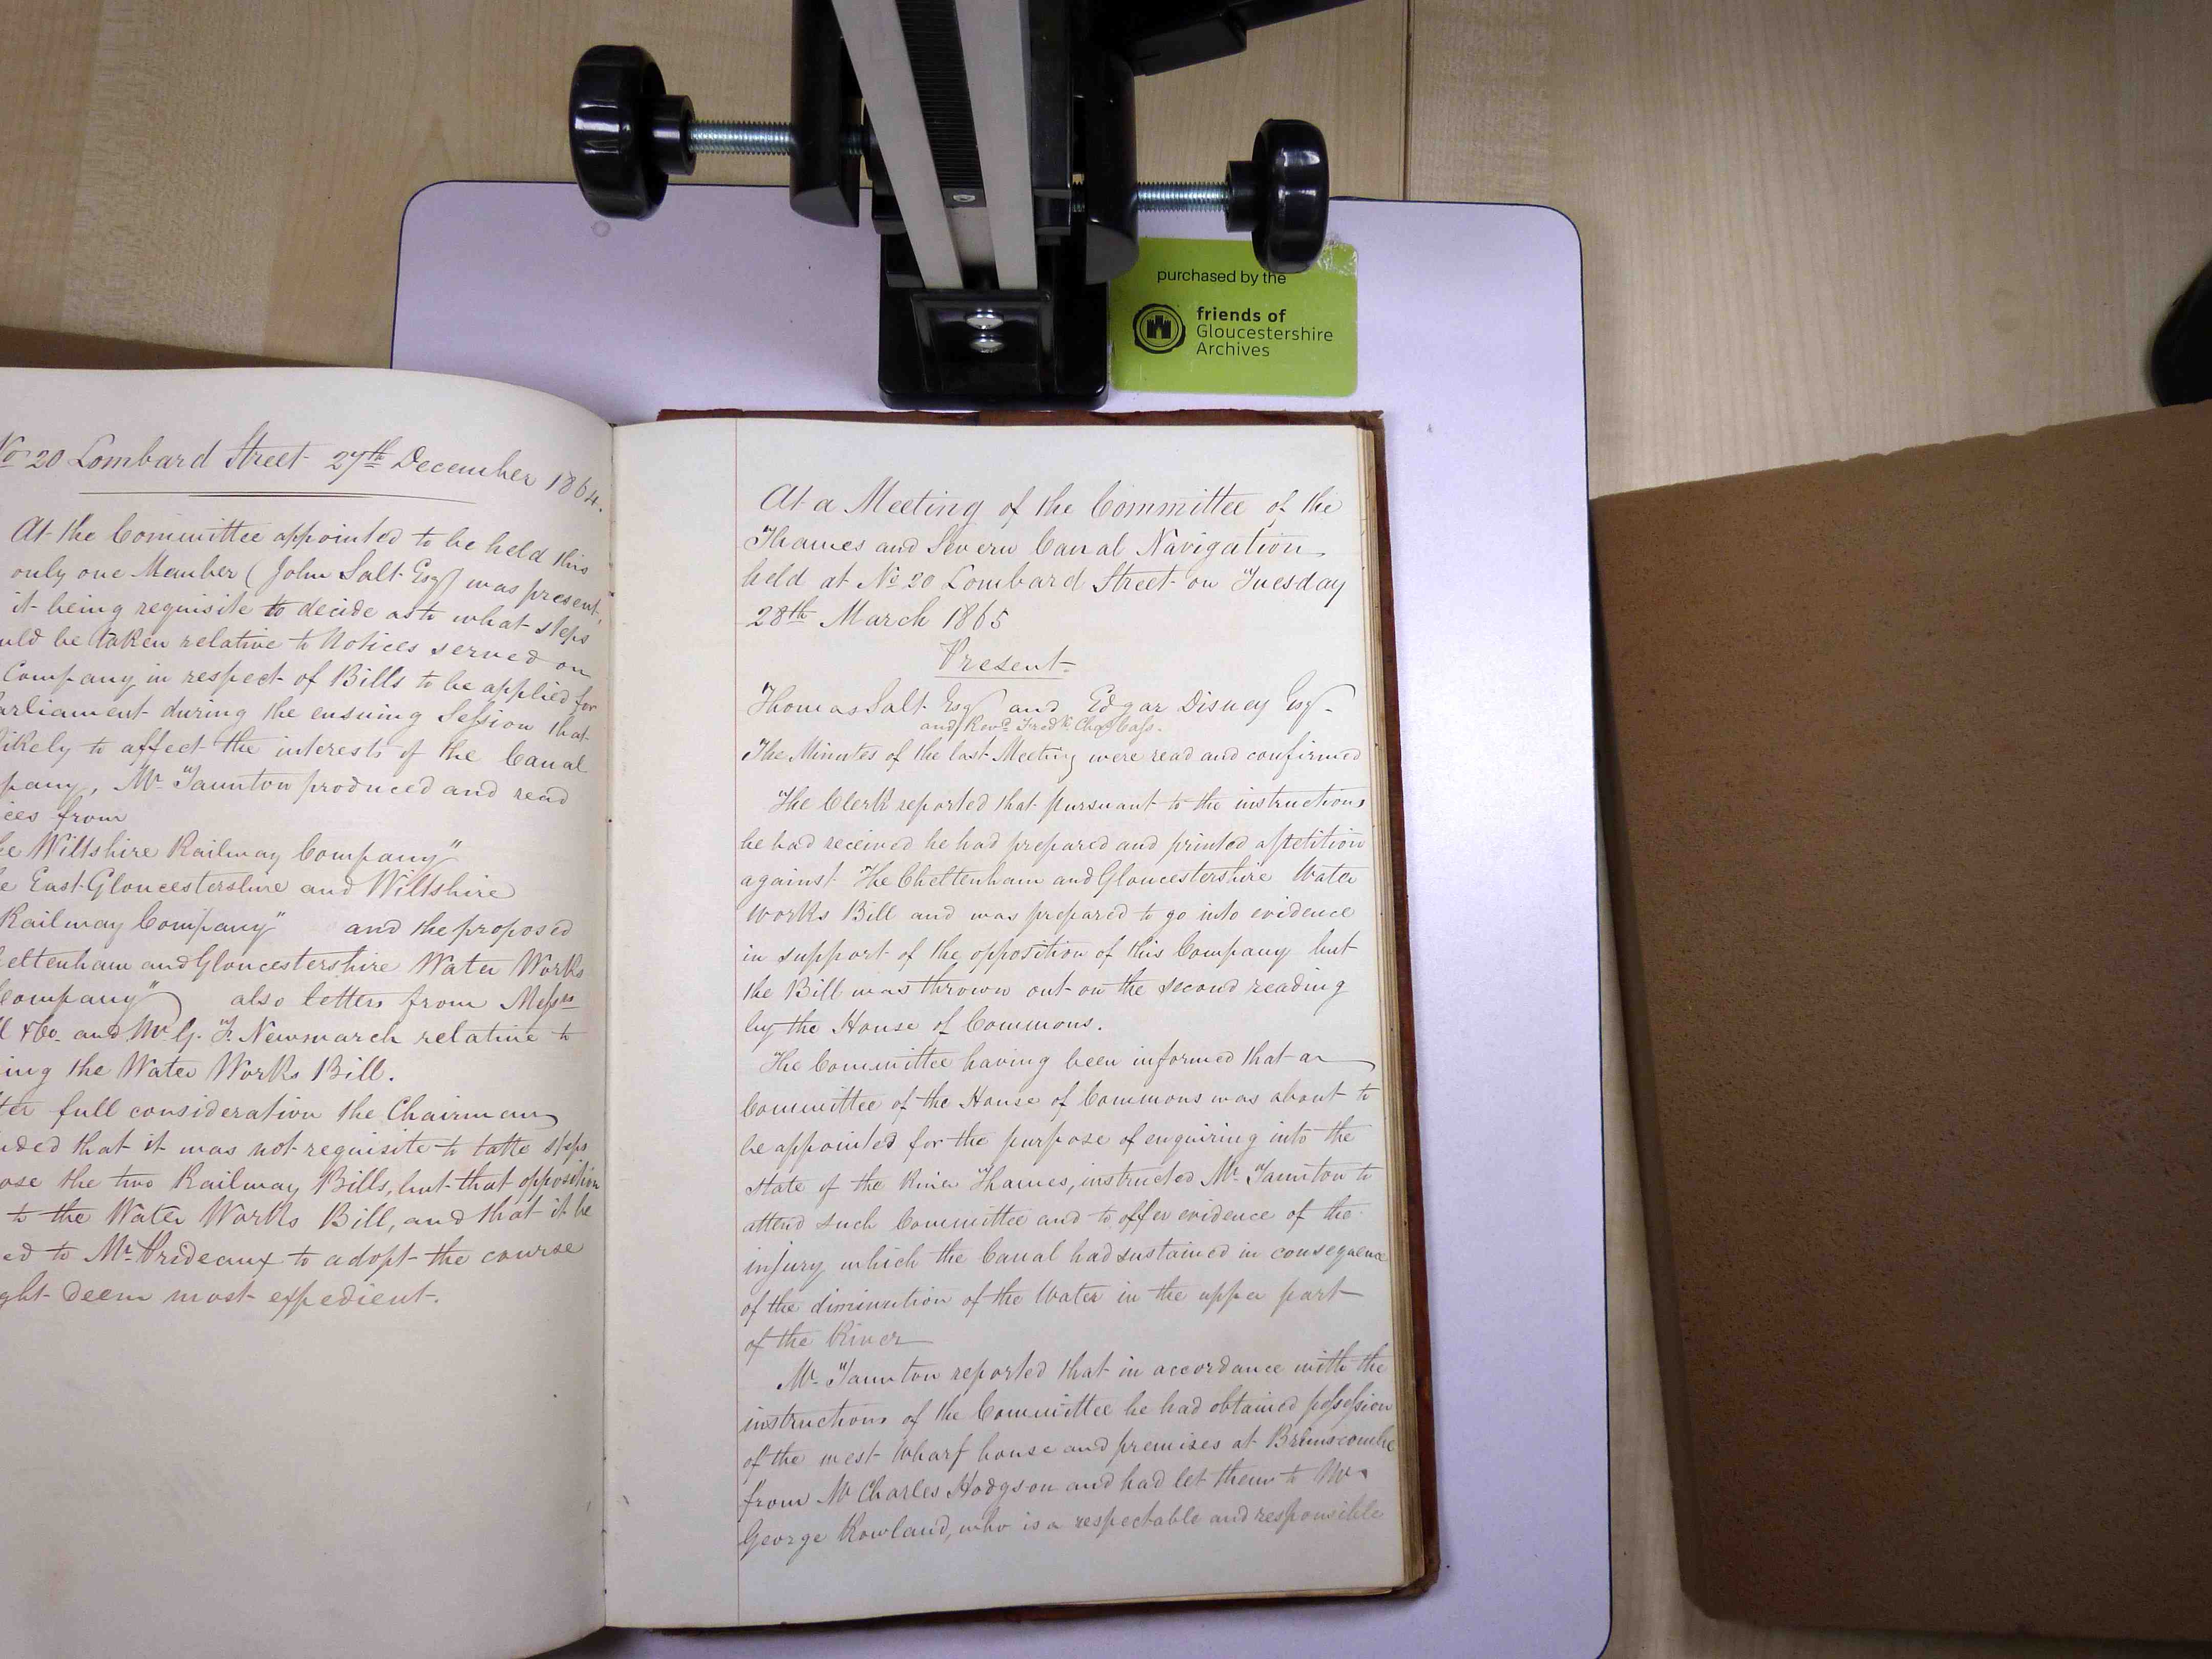 purchased by the
friends of
Gloucestershire
Archives
No 20 Lombard Street 27th December 1864.
At the Committee appointed to be held this
only one Member (John Salt Esq) was present,
it being requisite to decide as to what steps
uld be taken relative to Notices served on
Company in respect of Bills to be applied for
arliament during the ensuing Session that
likely to affect the interests of the Canal
pany, Mr Taunton produced and read
ces from
e Wiltshire Railway Company"
e East Gloucestershire and Wiltshire
Railway Company" and the proposed
eltenham and Gloucestershire Water Works
Company" also letters from Messrs
& Co. and Mr G. F. Newmarch relative to
ing the Water Works Bill.
ter full consideration the Chairman
ded that it was not requisite to take steps
ose the two Railway Bills, but that opposition
to the Water Works Bill, and that it be
ed to Mr Prideaux to adopt the course
ght deem most expedient.
At a Meeting of the Committee of the
Thames and Severn Canal Navigation
held at No 20 Lombard Street on Tuesday
28th March 1865
Present
Thomas Salt Esq and Edgar Disney Esq
and Revd Fredk Chas Cass.
The Minutes of the last Meeting were read and confirmed
The Clerk reported that pursuant to the instructions
he had received he had prepared and printed a petition
against The Cheltenham and Gloucestershire Water
Works Bill and was prepared to go into evidence
in support of the opposition of this Company but
the Bill was thrown out on the second reading
by the House of Commons.
The Committee having been informed that a
Committee of the House of Commons was about to
be appointed for the purpose of enquiring into the
state of the River Thames, instructed Mr Taunton to
attend such Committee and to offer evidence of the
injury which the Canal had sustained in consequence
of the diminution of the Water in the upper part
of the River
Mr Taunton reported that in accordance with the
instructions of the Committee he had obtained possession
of the west Wharf house and premises at Brimscombe
from Mr Charles Hodgson and had let them to Mr
George Rowland, who is a respectable and responsible